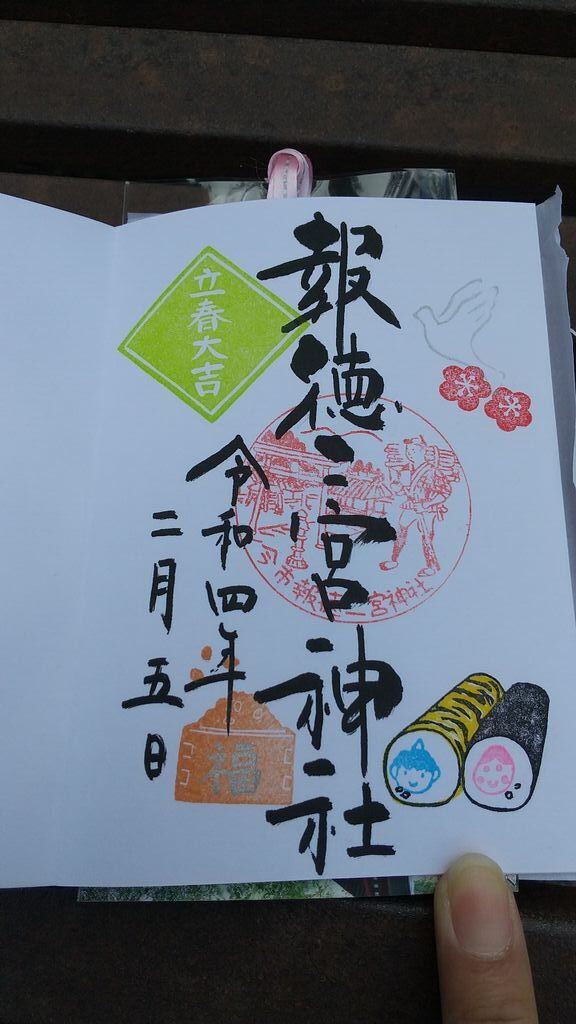 報徳二宮神社
立春大吉
令和四年
二月五日
報徳二宮神社
福